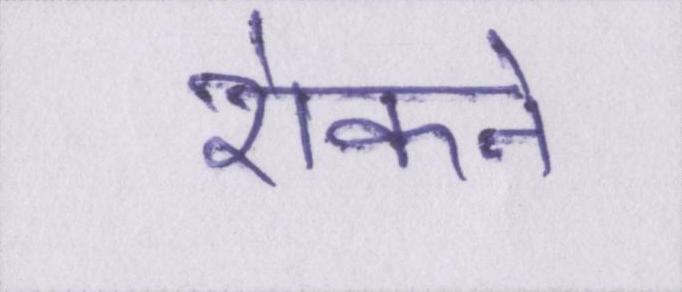 रोकने